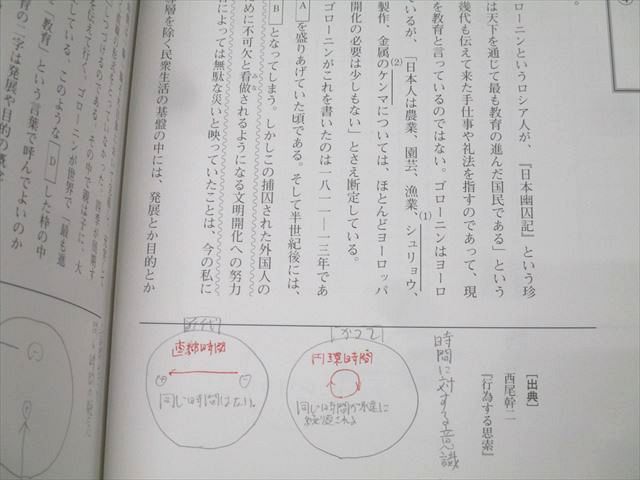 ローニンというロシア人が、『日本幽囚記』という珍
は天下を通じて最も教育の進んだ国民である」という
幾代も伝えて来た手仕事や礼法を指すのであって、現
を教育と言っているのではない。ゴローニンはヨーロ
ているが、「日本人は農業、園芸、漁業、シュリョウ、
(1)
製作、金属のケンマについては、ほとんどヨーロッパ
(2)
開化の必要は少しもない」とさえ断定している。
ゴローニンがこれを書いたのは一八一一―一三年であ
Aを盛りあげていた頃である。そして半世紀後には、
Bとなってしまう。しかしこの捕囚された外国人の
めに不可欠と看做されるようになる文明開化への努力
みな
によっては無駄な災いと映っていたことは、今の私に
層を除く民衆生活の基盤の中には、発展とか目的とか
大
ゴローニンが世界で「最も進
している。このような D した枠の中
「教育」という言葉で呼んでよいのか
育の一字は発展や目的の概念
［出典］
西尾幹二
『行為する思索』
時間に対する意識
かつて
円環時間
同じ時間が永遠に
繰り返される
近代
直線時間
同じ時間はない。